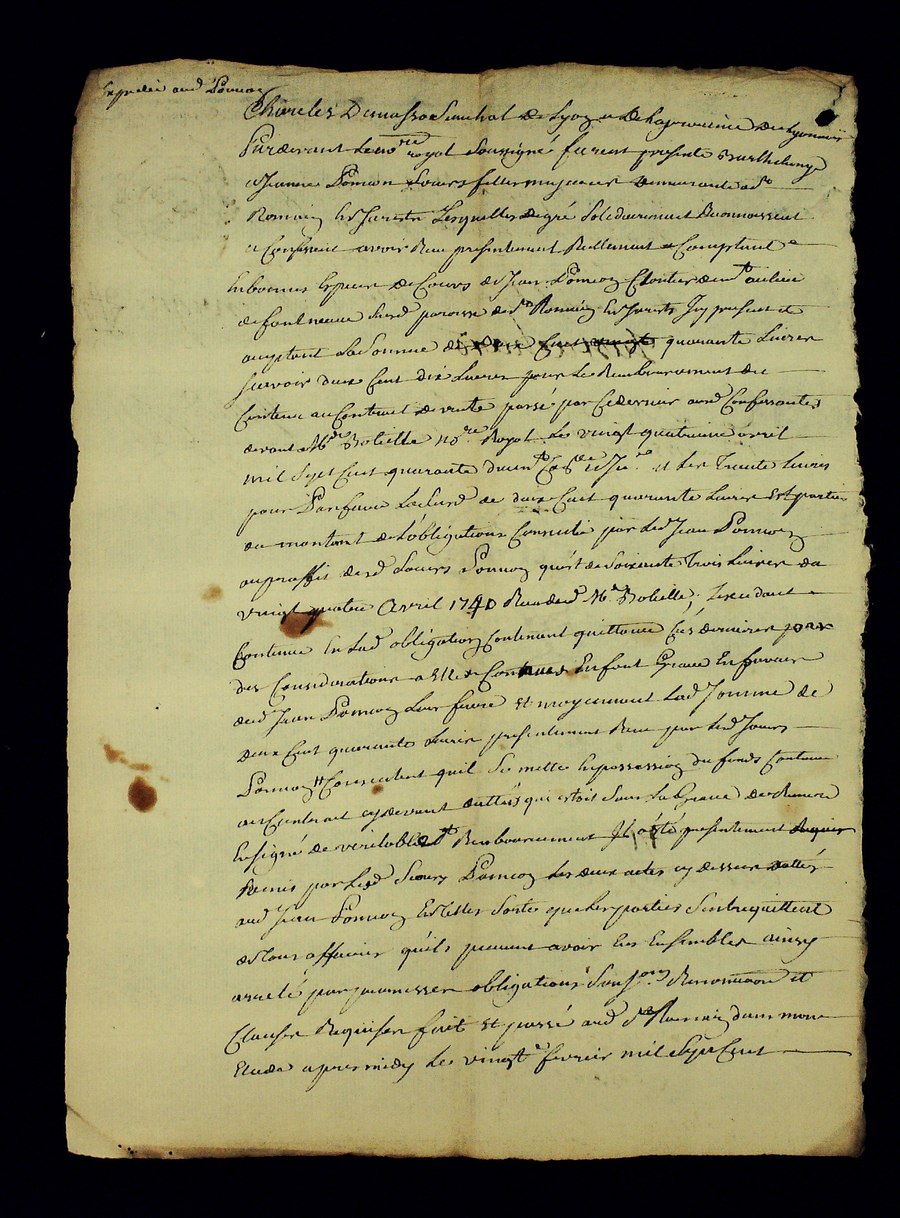 Expedié aud Poncon
Charles De masso Senechal de Lyon et De la province de Lyonnois
Pardevant le no.re royal Soussigné furent presente Barthelemye
et Jeanne Poncon Sœurs filles majeures demeurante a S.t
Romain les Lesquelles de gré Solidairement Reconnoissent
et Confessent avoir Reçu presentement Reellement et Comptant
En bonnes Especes de Cours de Jean Poncon Cloutier dem.t au lieu
de Susd paroisse de S.t Romain Icy present et
acceptant La Somme de deux Cent quarante Livres
Scavoir deux Cent dix Livres pour le Remboursement du
Contenu au Contrat de vente passé par Ce dernier aud Confessantes
devant M.e Bobille No.re Royal Le vingt quatrieme avril
mil Sept Cent quarante et les Trente Livres
pour Parfaire La Susd de deux Cent quarante Livres Est partie
du montant de L'obligation Consentie par led Jean Poncon
au proffit desd Sœurs Poncon qu'est de Soixante Trois Livres du
vingt quatre Avril 1740 Reçu dud M.e Bobille,
Contenue En Lad obligation Contenant quittance Ces dernieres pour
des Considerations a Elles Connues En font Grace En faveur
dud Jean Poncon Leur frere et moyennant Lad Somme de
deux Cent quarante Livres presentement Reçu par lesd Sœurs
Poncon Consentent qu'il Se mette En possession du fonds Contenu
au Contrat cy devant datté qui estoit Sous La Grace de Remere
En signe de veritable Remboursement Il a été presentement
Remis par Lesd Sœurs Poncon Les deux actes cy dessus dattés
aud Jean Poncon En telles Sorte que les parties S'entrequittent
de Tous affaires qu'ils peuvent avoir Eus Ensembles ainsy
arreté par promesses obligations Renonciation et
Clauses Requises fait et passé aud S.t Romain dans mon
Etude apres midy Le vingt.e fevrier mil Sept Cent